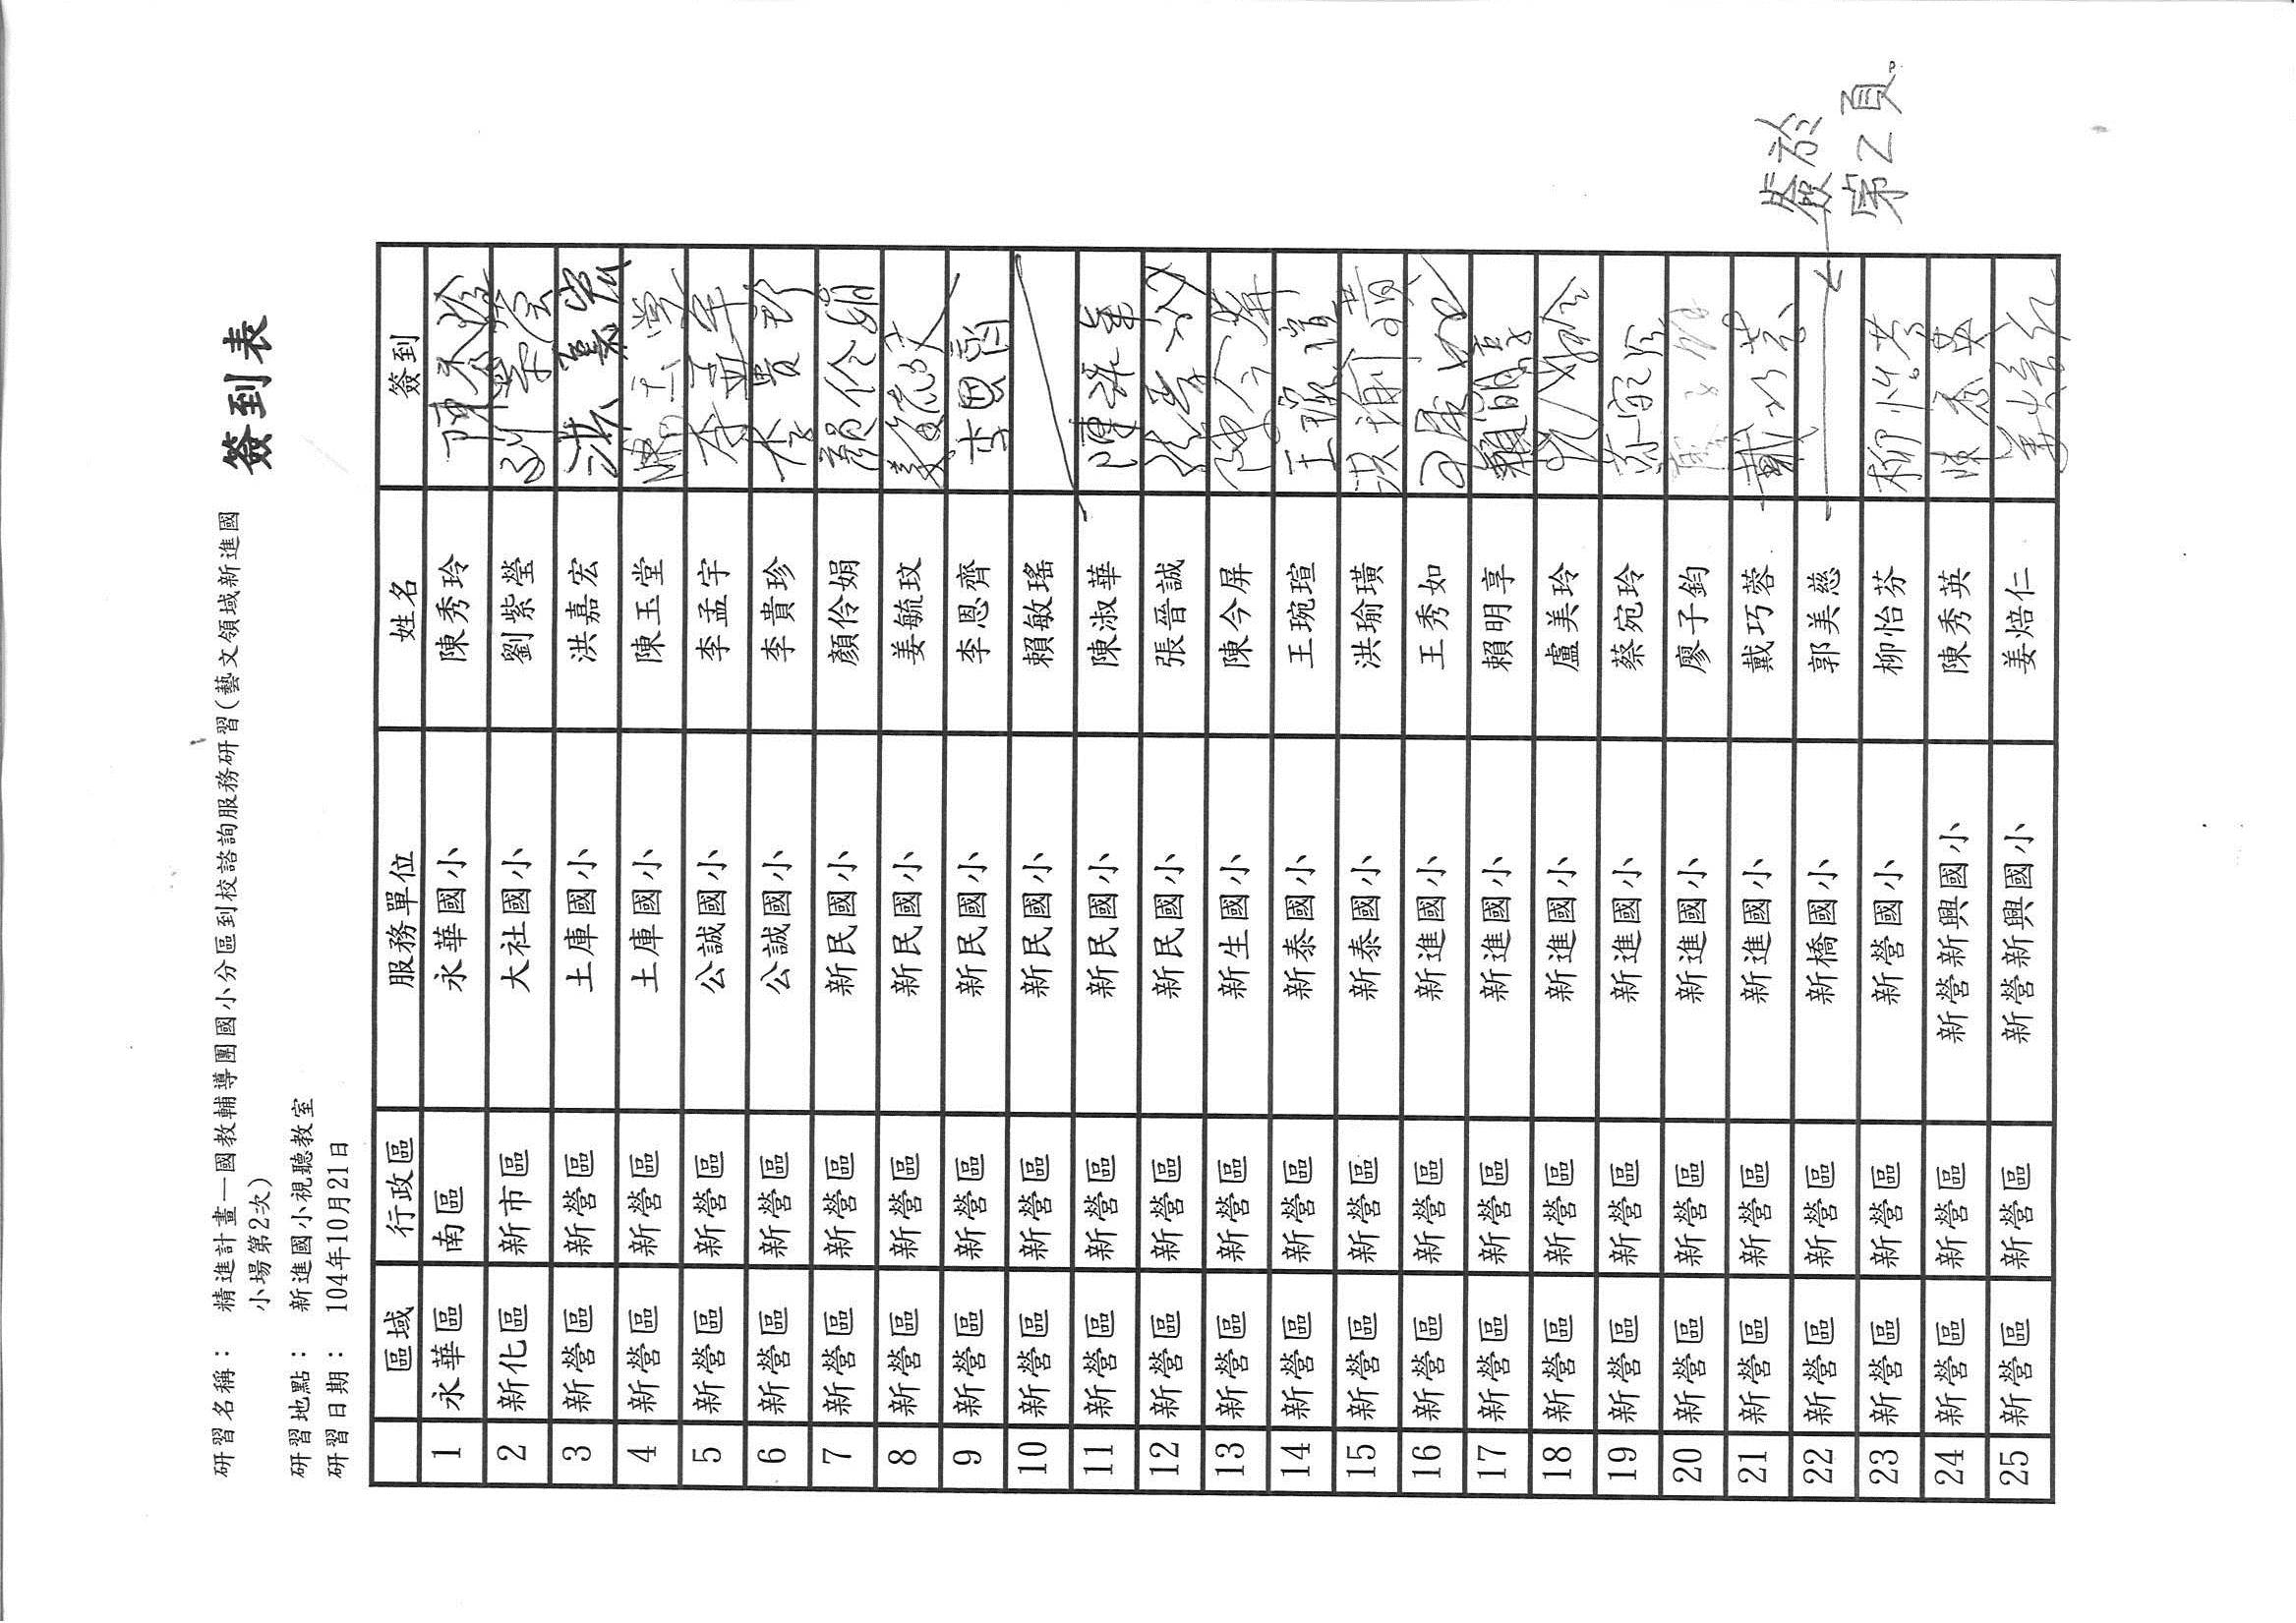 簽到表
研習名稱： 精進計畫—國教輔導團國小分區到校諮詢服務研習(藝文領域新進國
小場第2次)
研習地點： 新進國小視聽教室
研習日期： 104年10月21日
區域 行政區 服務單位 姓名 簽到
1 永華區 南區 永華國小 陳秀玲 陳秀玲
2 新化區 新市區 大社國小 劉紫瑩 劉紫瑩
3 新營區 新營區 土庫國小 洪嘉宏 洪嘉宏
4 新營區 新營區 土庫國小 陳玉堂 陳玉堂
5 新營區 新營區 公誠國小 李孟宇 李孟宇
6 新營區 新營區 公誠國小 李貴珍 李貴珍
7 新營區 新營區 新民國小 顏伶娟 顏伶娟
8 新營區 新營區 新民國小 姜毓玟 姜毓玟
9 新營區 新營區 新民國小 李恩齊 李恩齊
10 新營區 新營區 新民國小 賴敏瑤
11 新營區 新營區 新民國小 陳淑華 陳淑華
12 新營區 新營區 新民國小 張晉誠 張晉誠
13 新營區 新營區 新生國小 陳今屏 陳今屏
14 新營區 新營區 新泰國小 王琬瑄 王琬瑄
15 新營區 新營區 新泰國小 洪瑜璜 洪瑜璜
16 新營區 新營區 新進國小 王秀如
17 新營區 新營區 新進國小 賴明享 賴明享
18 新營區 新營區 新進國小 盧美玲
19 新營區 新營區 新進國小 蔡宛玲
20 新營區 新營區 新進國小 廖子鈞
21 新營區 新營區 新進國小 戴巧蓉 戴巧蓉
22 新營區 新營區 新橋國小 郭美慈 簽於
第2頁。
23 新營區 新營區 新營國小 柳怡芬 柳怡芬
24 新營區 新營區 新營新興國小 陳秀英 陳秀英
25 新營區 新營區 新營新興國小 姜焙仁